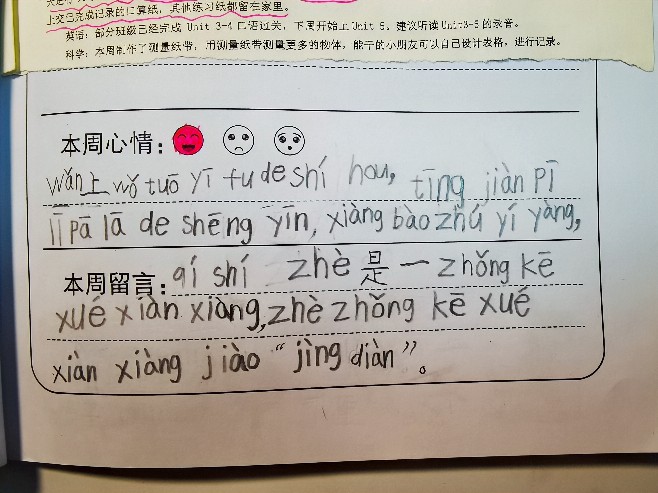 上交已完成记录的口算纸，其他练习纸都留在家里。
英语：部分班级已经完成 Unit 3-4 口语过关，下周开始上Unit 5，建议听读Unit3-5 的录音。
科学：本周制作了测量纸带，用测量纸带测量更多的物体，能干的小朋友可以自己设计表格，进行记录。
本周心情：
wǎn上 wǒ tuō yī fu de shí hou，tīng jiàn pī
lī pā lā de shēng yīn，xiàng bào zhú yí yàng，
本周留言：qí shí zhè 是 一 zhǒng kē
xué xiàn xiàng，zhè zhǒng kē xué
xiàn xiàng jiào “jìng diàn”。